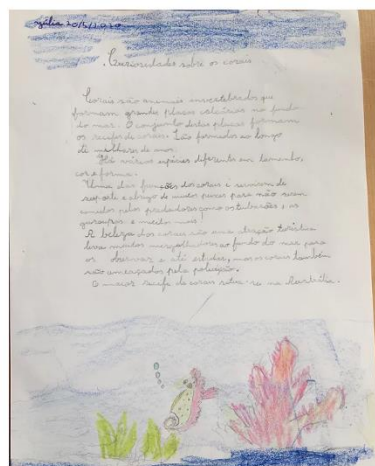 Júlia 20/5/2020
Curiosidades sobre os corais
Corais são animais invertebrados que
formam grandes placas calcárias no fundo
do mar. O conjunto destas placas formam
os recifes de corais. São formados ao longo
de milhares de anos.
Há várias espécies diferente em tamanho,
cor e forma.
Uma das funções dos corais é servirem de
suporte e abrigo de muitos peixes para não serem
comidos pelos predadores como os tubarões, as
garoupas e muito mais.
A beleza dos corais são uma atração turística
leva muitos mergulhadores ao fundo do mar para
os observar e até estudar, mas os corais também
são ameaçados pela poluição.
O maior recife de corais situa-se na Austrália.